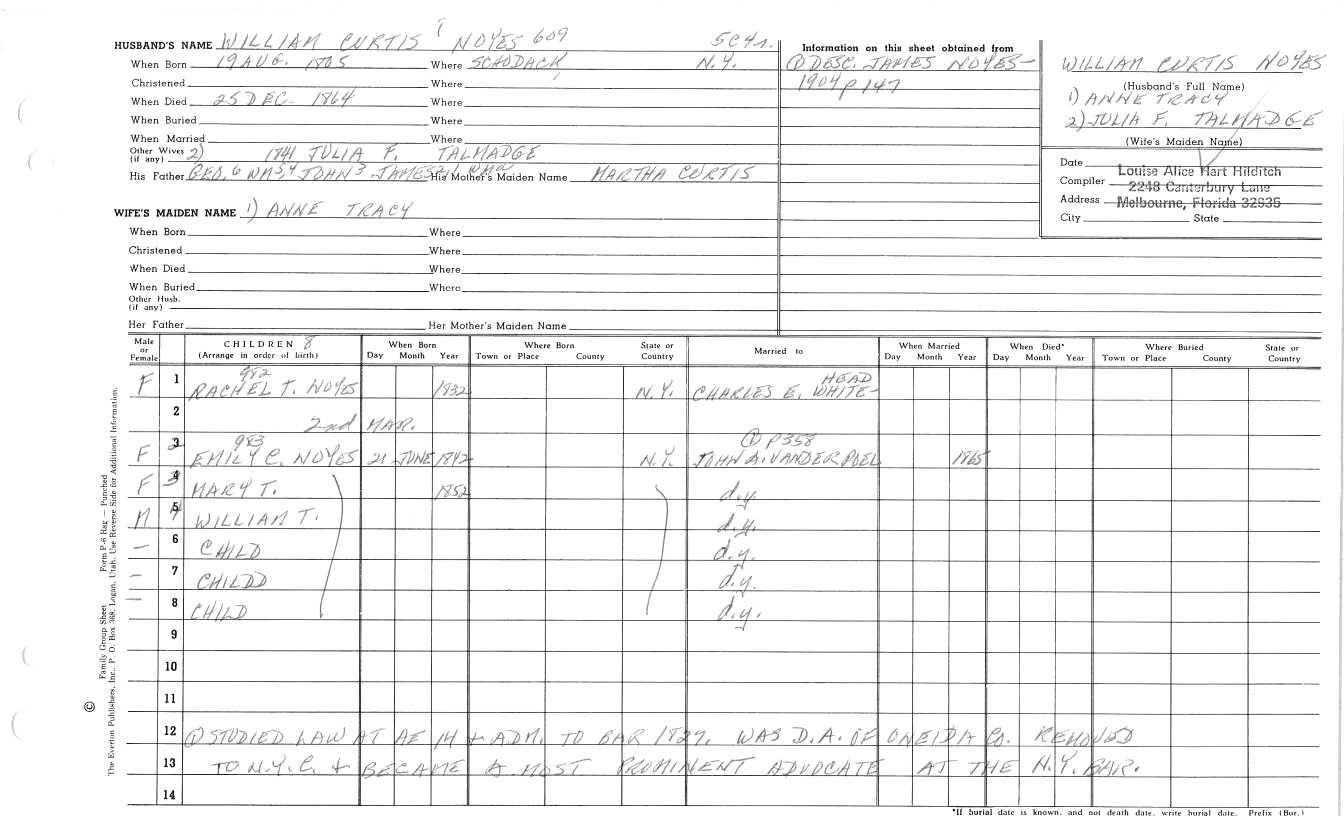 HUSBAND'S NAME WILLIAM CURTIS NOYES 609
When Born 19 AUG. 1805 Where SCHODACK N.Y.
Christened Where
When Died 25 DEC. 1864 Where
When Buried Where
When Married Where
Other Wives (if any) 2) 1841 JULIA F. TALMADGE
His Father GEO.6 WM5,4 JOHN3 JAMES2 His Mother's Maiden Name MARTHA CURTIS
WIFE'S MAIDEN NAME 1) ANNE TRACY
When Born Where
Christened Where
When Died Where
When Buried Where
Other Husb. (if any)
Her Father Her Mother's Maiden Name
Information on this sheet obtained from
① DESC. JAMES NOYES-
1904 p 147
WILLIAM CURTIS NOYES
(Husband's Full Name)
1) ANNE TRACY
2) JULIA F. TALMADGE
(Wife's Maiden Name)
Date
Compiler Louise Alice Hart Hilditch
Address 2248 Canterbury Lane
Melbourne, Florida 32935
City State
Male or Female CHILDREN 8 (Arrange in order of birth) When Born Day Month Year Where Born Town or Place County State or Country Married to When Married Day Month Year When Died* Day Month Year Where Buried Town or Place County State or Country
F 1 982 RACHEL T. NOYES 1832 N.Y. CHARLES E. WHITE-HEAD
2 2nd MAR.
F 3 983 EMILY C. NOYES 21 JUNE 1842 N.Y. ① P358 JOHN A. VANDERPOEL 1865
F 4 3 MARY T. 1852 d.y.
M 5 4 WILLIAM T. d.y.
- 6 CHILD d.y.
- 7 CHILDD d.y.
- 8 CHILD d.y.
9
10
11
12 ① STUDIED LAW AT AE 14 + ADM. TO BAR 1827. WAS D.A. OF ONEIDA CO. REMOVED
13 TO N.Y.C. + BECAME A MOST PROMINENT ADVOCATE AT THE N.Y. BAR.
14
*If burial date is known, and not death date, write burial date. Prefix (Bur.)
Family Group Sheet Form P-6 Rag — Punched
© The Everton Publishers, Inc., P. O. Box 368, Logan, Utah. Use Reverse Side for Additional Information.